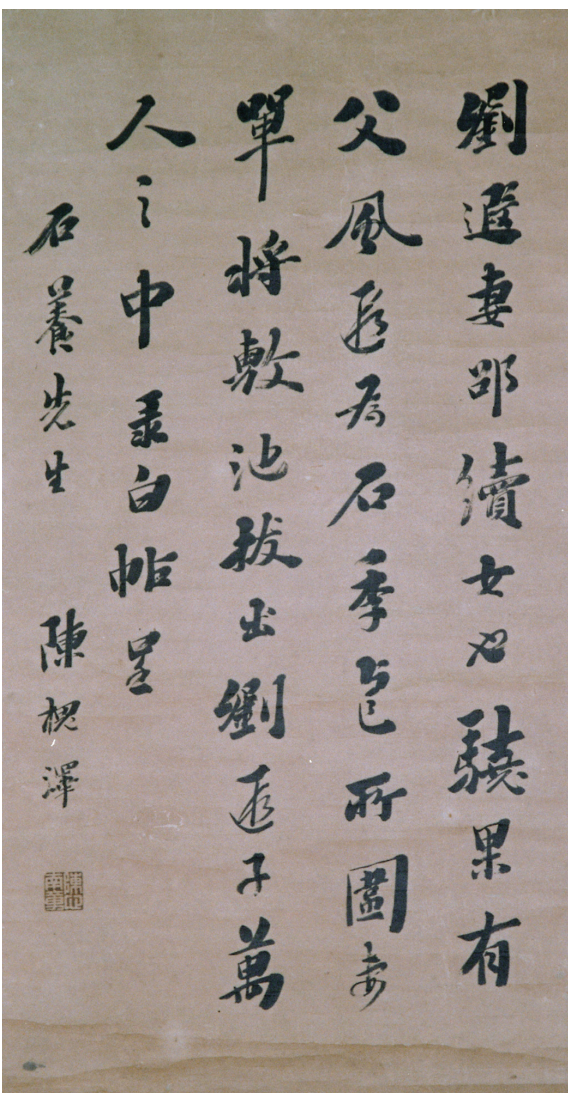 劉遐妻邵續女也驍果有
父風遐為石季龍所圍妻
單將數池拔出劉遐于萬
人之中彔白帖呈
石養先生 陳槐澤